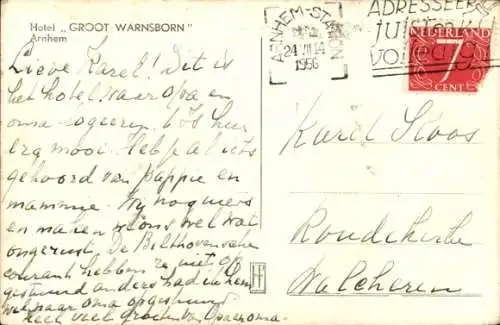 Hotel „GROOT WARNSBORN"
Arnhem
Lieve Karel! Dit is
het hotel, waar opa en
oma logeeren. 't Is hier
erg mooi. Heb je al iets
gehoord van pappie en
mammie. Wij nog niets
en maken ons wel wat
ongerust. De Bilthovensche
courant hebben ze niet op
gestuurd anders had ik hem
wel naar oma opgestuurd
heel veel groeten van Opa en oma.
ARNHEM-STATION
24 VII 14
1956
ADRESSEER
JUIST
VOLLEDIG
NEDERLAND
7
CENT
Karel Sloos
Koudekerke
Walcheren